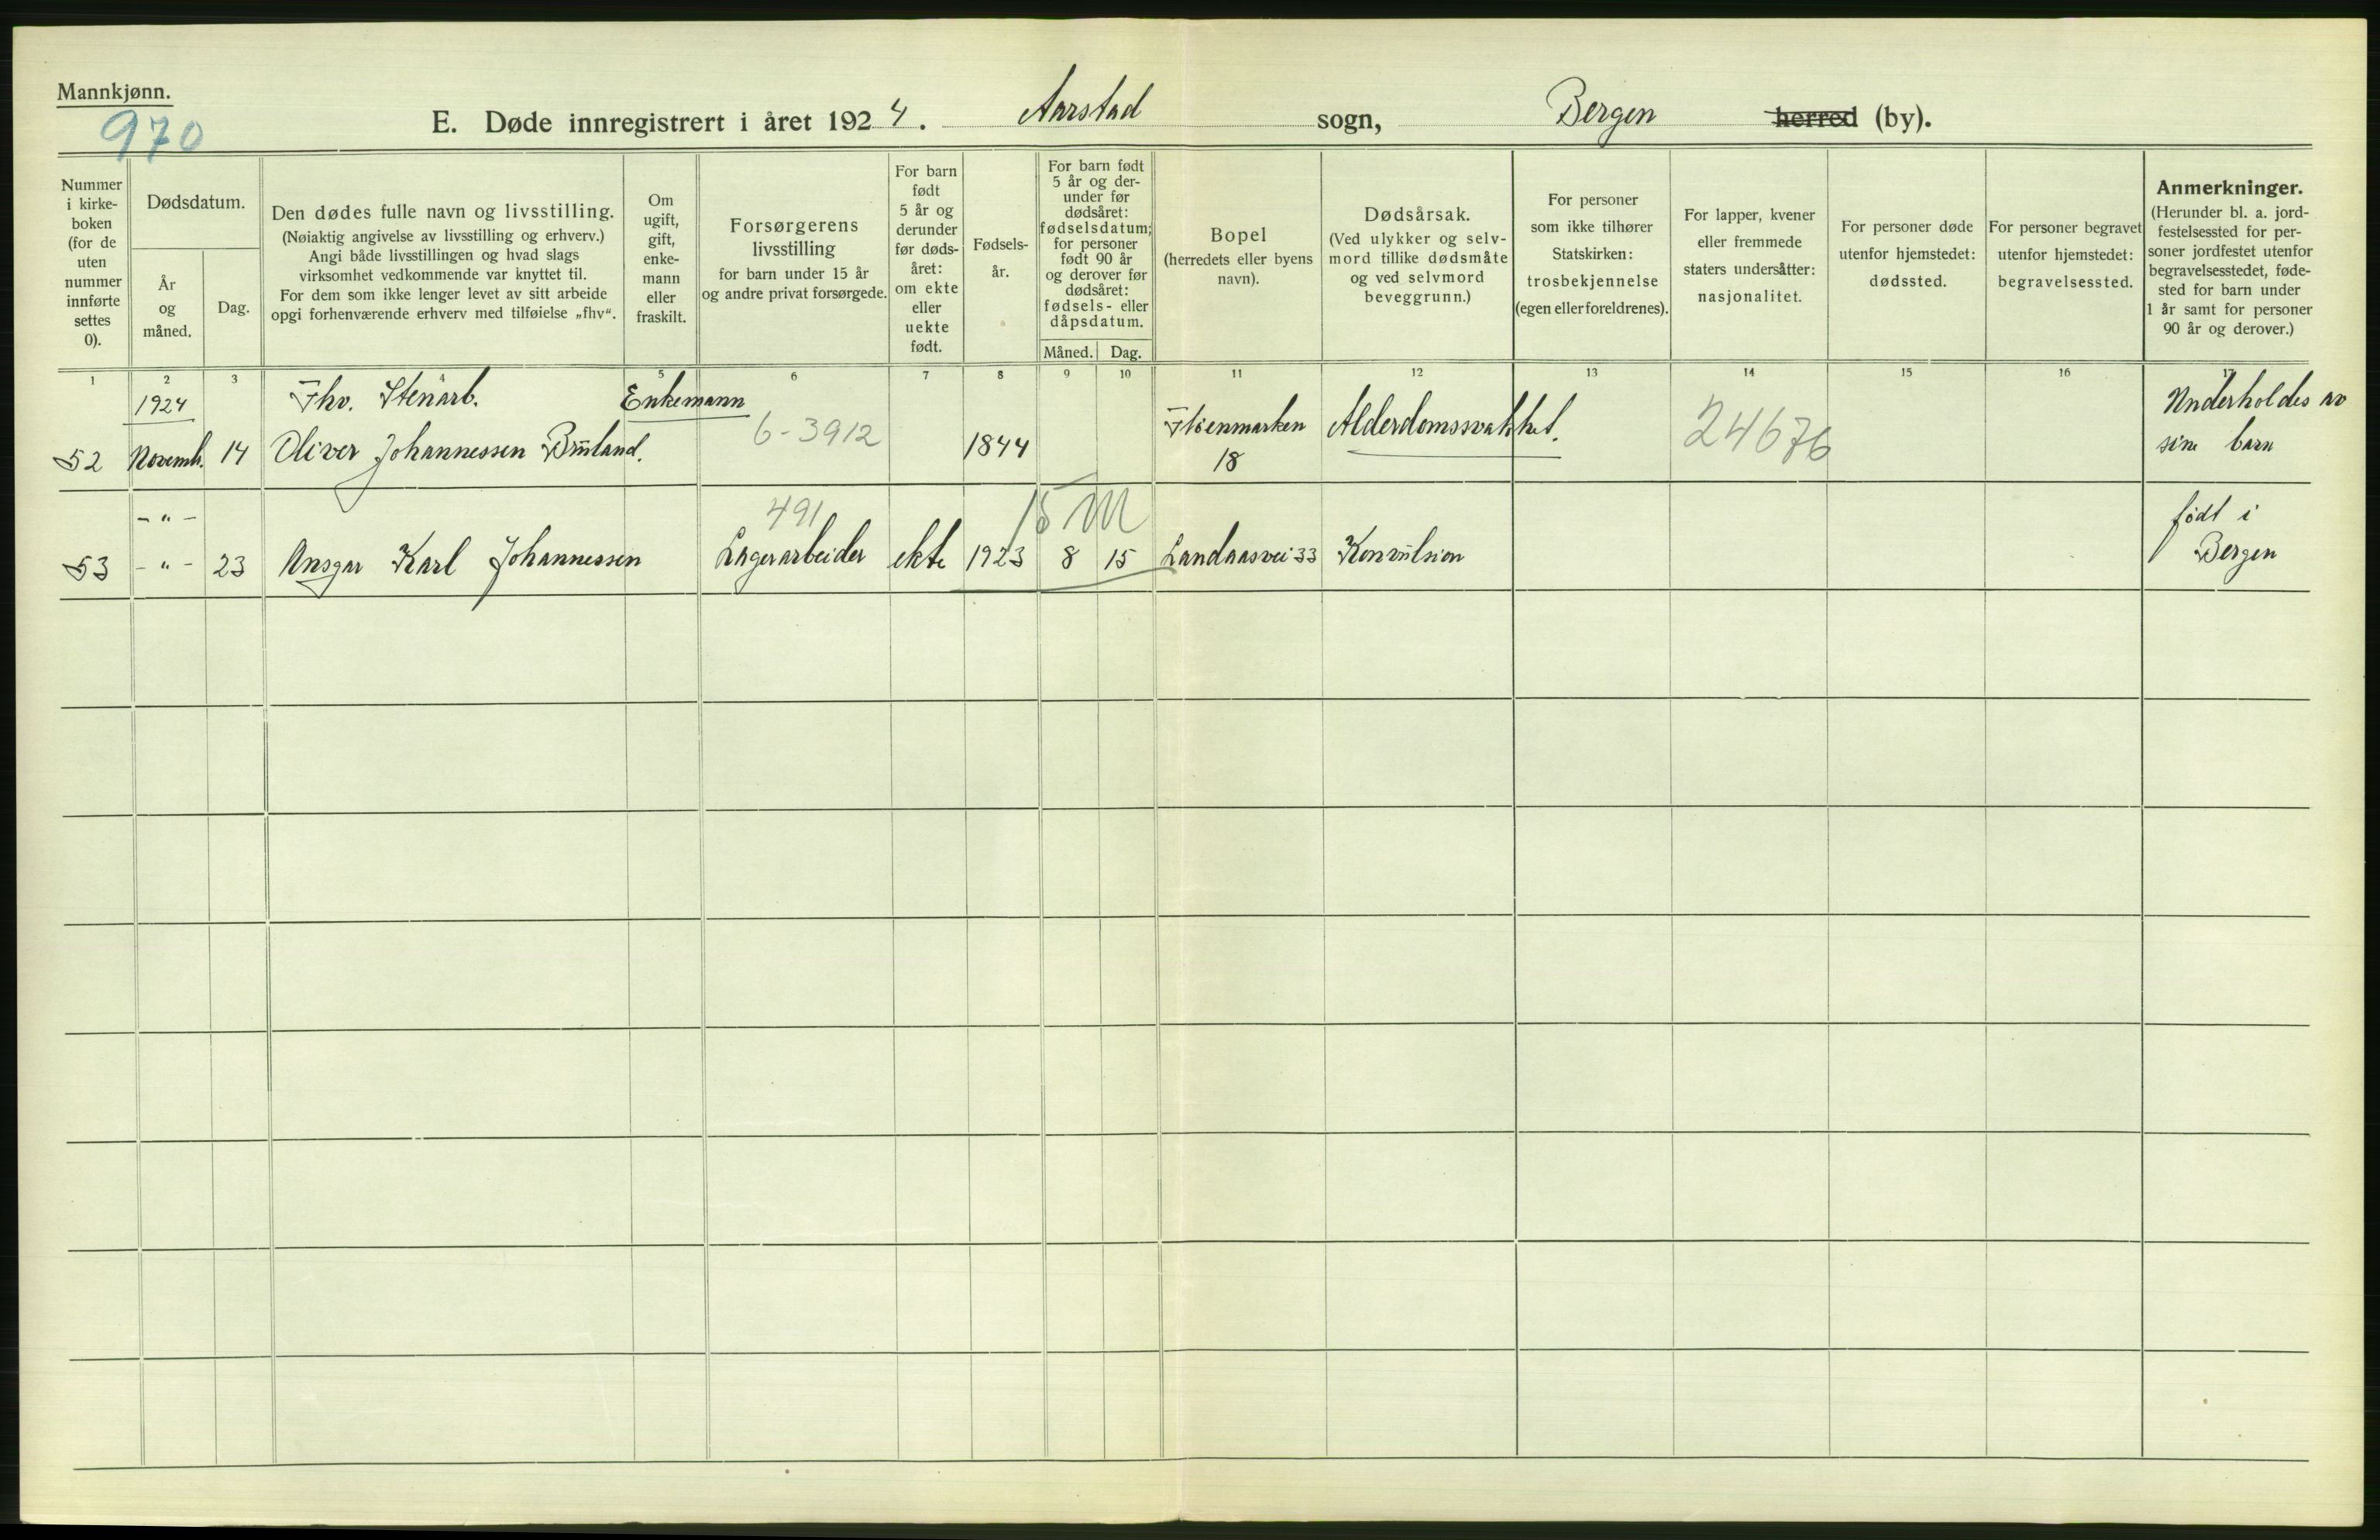 Mannkjønn.
970
E. Døde innregistrert i året 1924. Aarstad sogn, Bergen herred (by).
Nummer
i kirke-
boken
(for de
uten
nummer
innførte
settes
0).
Dødsdatum.
År
og
måned.
Dag.
Den dødes fulle navn og livsstilling.
(Nøiaktig angivelse av livsstilling og erhverv.)
Angi både livsstillingen og hvad slags
virksomhet vedkommende var knyttet til.
For dem som ikke lenger levet av sitt arbeide
opgi forhenværende erhverv med tilføielse „fhv“.
Om
ugift,
gift,
enke-
mann
eller
fraskilt.
Forsørgerens
livsstilling
for barn under 15 år
og andre privat forsørgede.
For barn
født
5 år og
derunder
før døds-
året:
om ekte
eller
uekte
født.
Fødsels-
år.
For barn født
5 år og der-
under før
dødsåret:
fødselsdatum;
for personer
født 90 år
og derover før
dødsåret:
fødsels- eller
dåpsdatum.
Måned. Dag.
Bopel
(herredets eller byens
navn).
Dødsårsak.
(Ved ulykker og selv-
mord tillike dødsmåte
og ved selvmord
beveggrunn.)
For personer
som ikke tilhører
Statskirken:
trosbekjennelse
(egen eller foreldrenes).
For lapper, kvener
eller fremmede
staters undersåtter:
nasjonalitet.
For personer døde
utenfor hjemstedet:
dødssted.
For personer begravet
utenfor hjemstedet:
begravelsessted.
Anmerkninger.
(Herunder bl. a. jord-
festelsessted for per-
soner jordfestet utenfor
begravelsesstedet, føde-
sted for barn under
1 år samt for personer
90 år og derover.)
1 2 3 5 6 7 8 9 10 11 12 13 14 15 16 17
1924 Fhv. Stenarb. Enkemann 6-3912 Underholdes av
52 Novemb. 14 Oliver Johannessen 1844 18 Alderdomssvakhet. 24676 sine barn
- " - 491 15 M født i
53 - " - 23 Ansgar Karl Johannessen Lagerarbeider ekte 1923 8 15 Landaasvei 33 Konvulsion Bergen